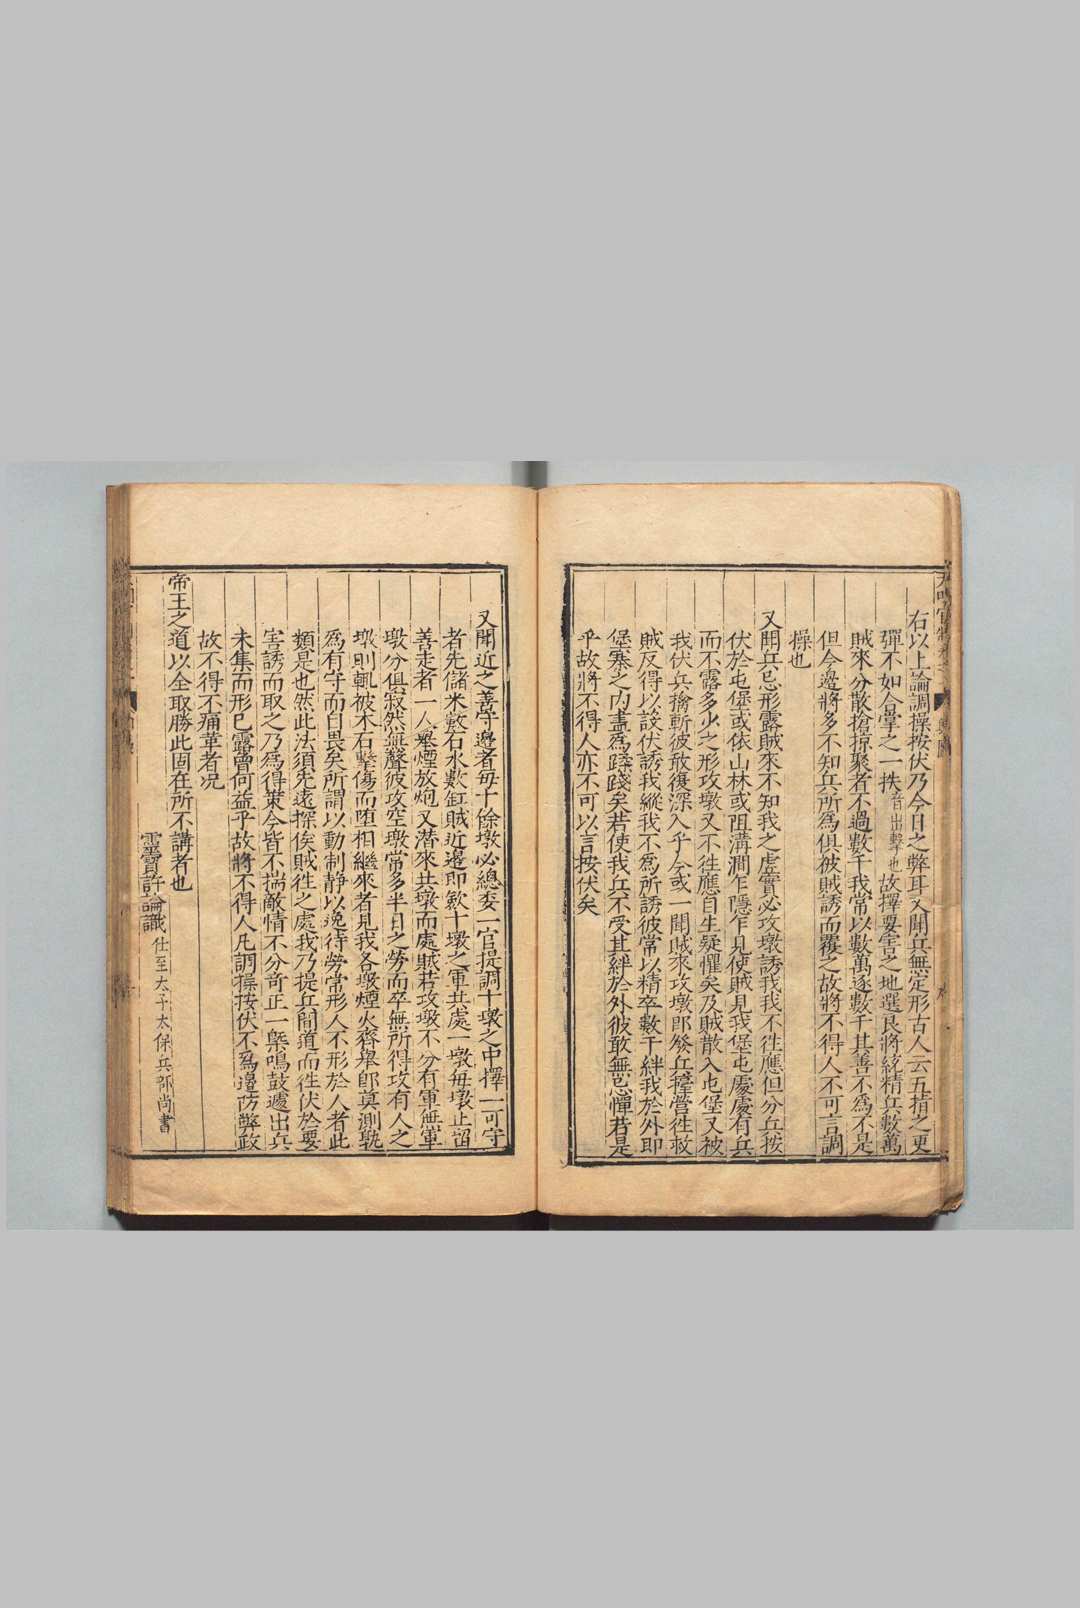 右以上論調操按伏乃今日之弊耳又聞兵無定形古人云五指之更
彈不如合拳之一抶音出擊也故擇要害之地選良將統精兵數萬
賊來分散搶掠聚者不過數千我常以數萬逐數千其善不為不是
但今邊將多不知兵所為俱被賊誘而覆之故將不得人不可言調
操也
又聞兵忌形露賊來不知我之虛實必攻墩誘我我不徃應但分兵按
伏於屯堡或依山林或阻溝澗乍隱乍見使賊見我堡屯處處有兵
而不露多少之形攻墩又不徃應自生疑懼矣及賊散入屯堡又被
我伏兵擒斬彼敢復深入乎今或一聞賊來攻墩即發兵𨄮營徃救
賊反得以設伏誘我縱我不為所誘彼常以精卒數千絆我於外即
堡寨之內盡為踐踐矣若使我兵不受其絆於外彼敢無忌憚若是
乎故將不得人亦不可以言按伏矣
又聞近之善守邊者每十餘墩必總委一官提調十墩之中擇一可守
者先儲米數石水數缸賊近邊即歛十墩之軍共處一墩每墩止留
善走者一人舉煙放炮又潛來共墩而處賊若攻墩不分有軍無軍
墩分俱寂然無聲彼攻空墩常多半日之勞而卒無所得攻有人之
墩則輒被木石擊傷而墮相繼來者見我各墩煙火齊舉即莫測孰
為有守而自畏矣所謂以動制静以逸待勞常形人不形於人者此
類是也然此法須先遠探俟賊徃之處我乃提兵間道而徃伏於要
害誘而取之乃為得策今皆不揣敵情不分竒正一槩鳴鼓遽出兵
未集而形已露曾何益乎故將不得人凡調操按伏不為邊防弊政
故不得不痛革者况
帝王之道以全取勝此固在所不講者也
靈寶許論識仕至太子太保兵部尚書